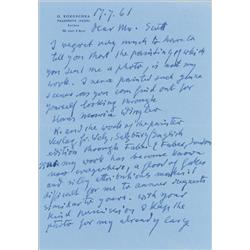 O. KOKOSCHKA
17.7.61
Dear Mr. Scott
I regret very much to have to
tell you that the painting of which
you sent me a photo, is not my
work. I never painted such genre
scenes as you can find out for
yourself looking through
Hans Maria Wingler
K. and the work of the painter
Verlag F. Welz, Salzburg English
edition through Faber & Faber, London
my work has become known
now everywhere, a flood of fakes
and silly attributions makes it
difficult for me to answer requests
similar to yours. With your
kind permission I keep the
photo for my already large